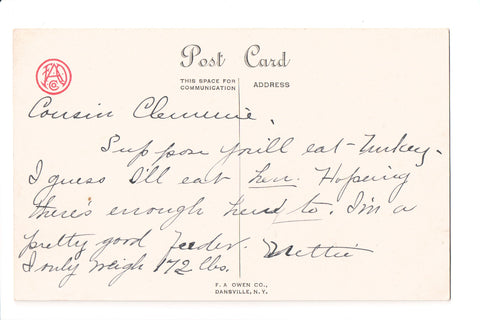 Post Card
THIS SPACE FOR
COMMUNICATION
ADDRESS
Cousin Clemmie,
Suppose you'll eat Turkey.
I guess I'll eat hen. Hopeing
there's enough hend to. I'm a
pretty good Feeder. Nettie
I only weigh 172 lbs.
F. A. OWEN CO.,
DANSVILLE, N.Y.